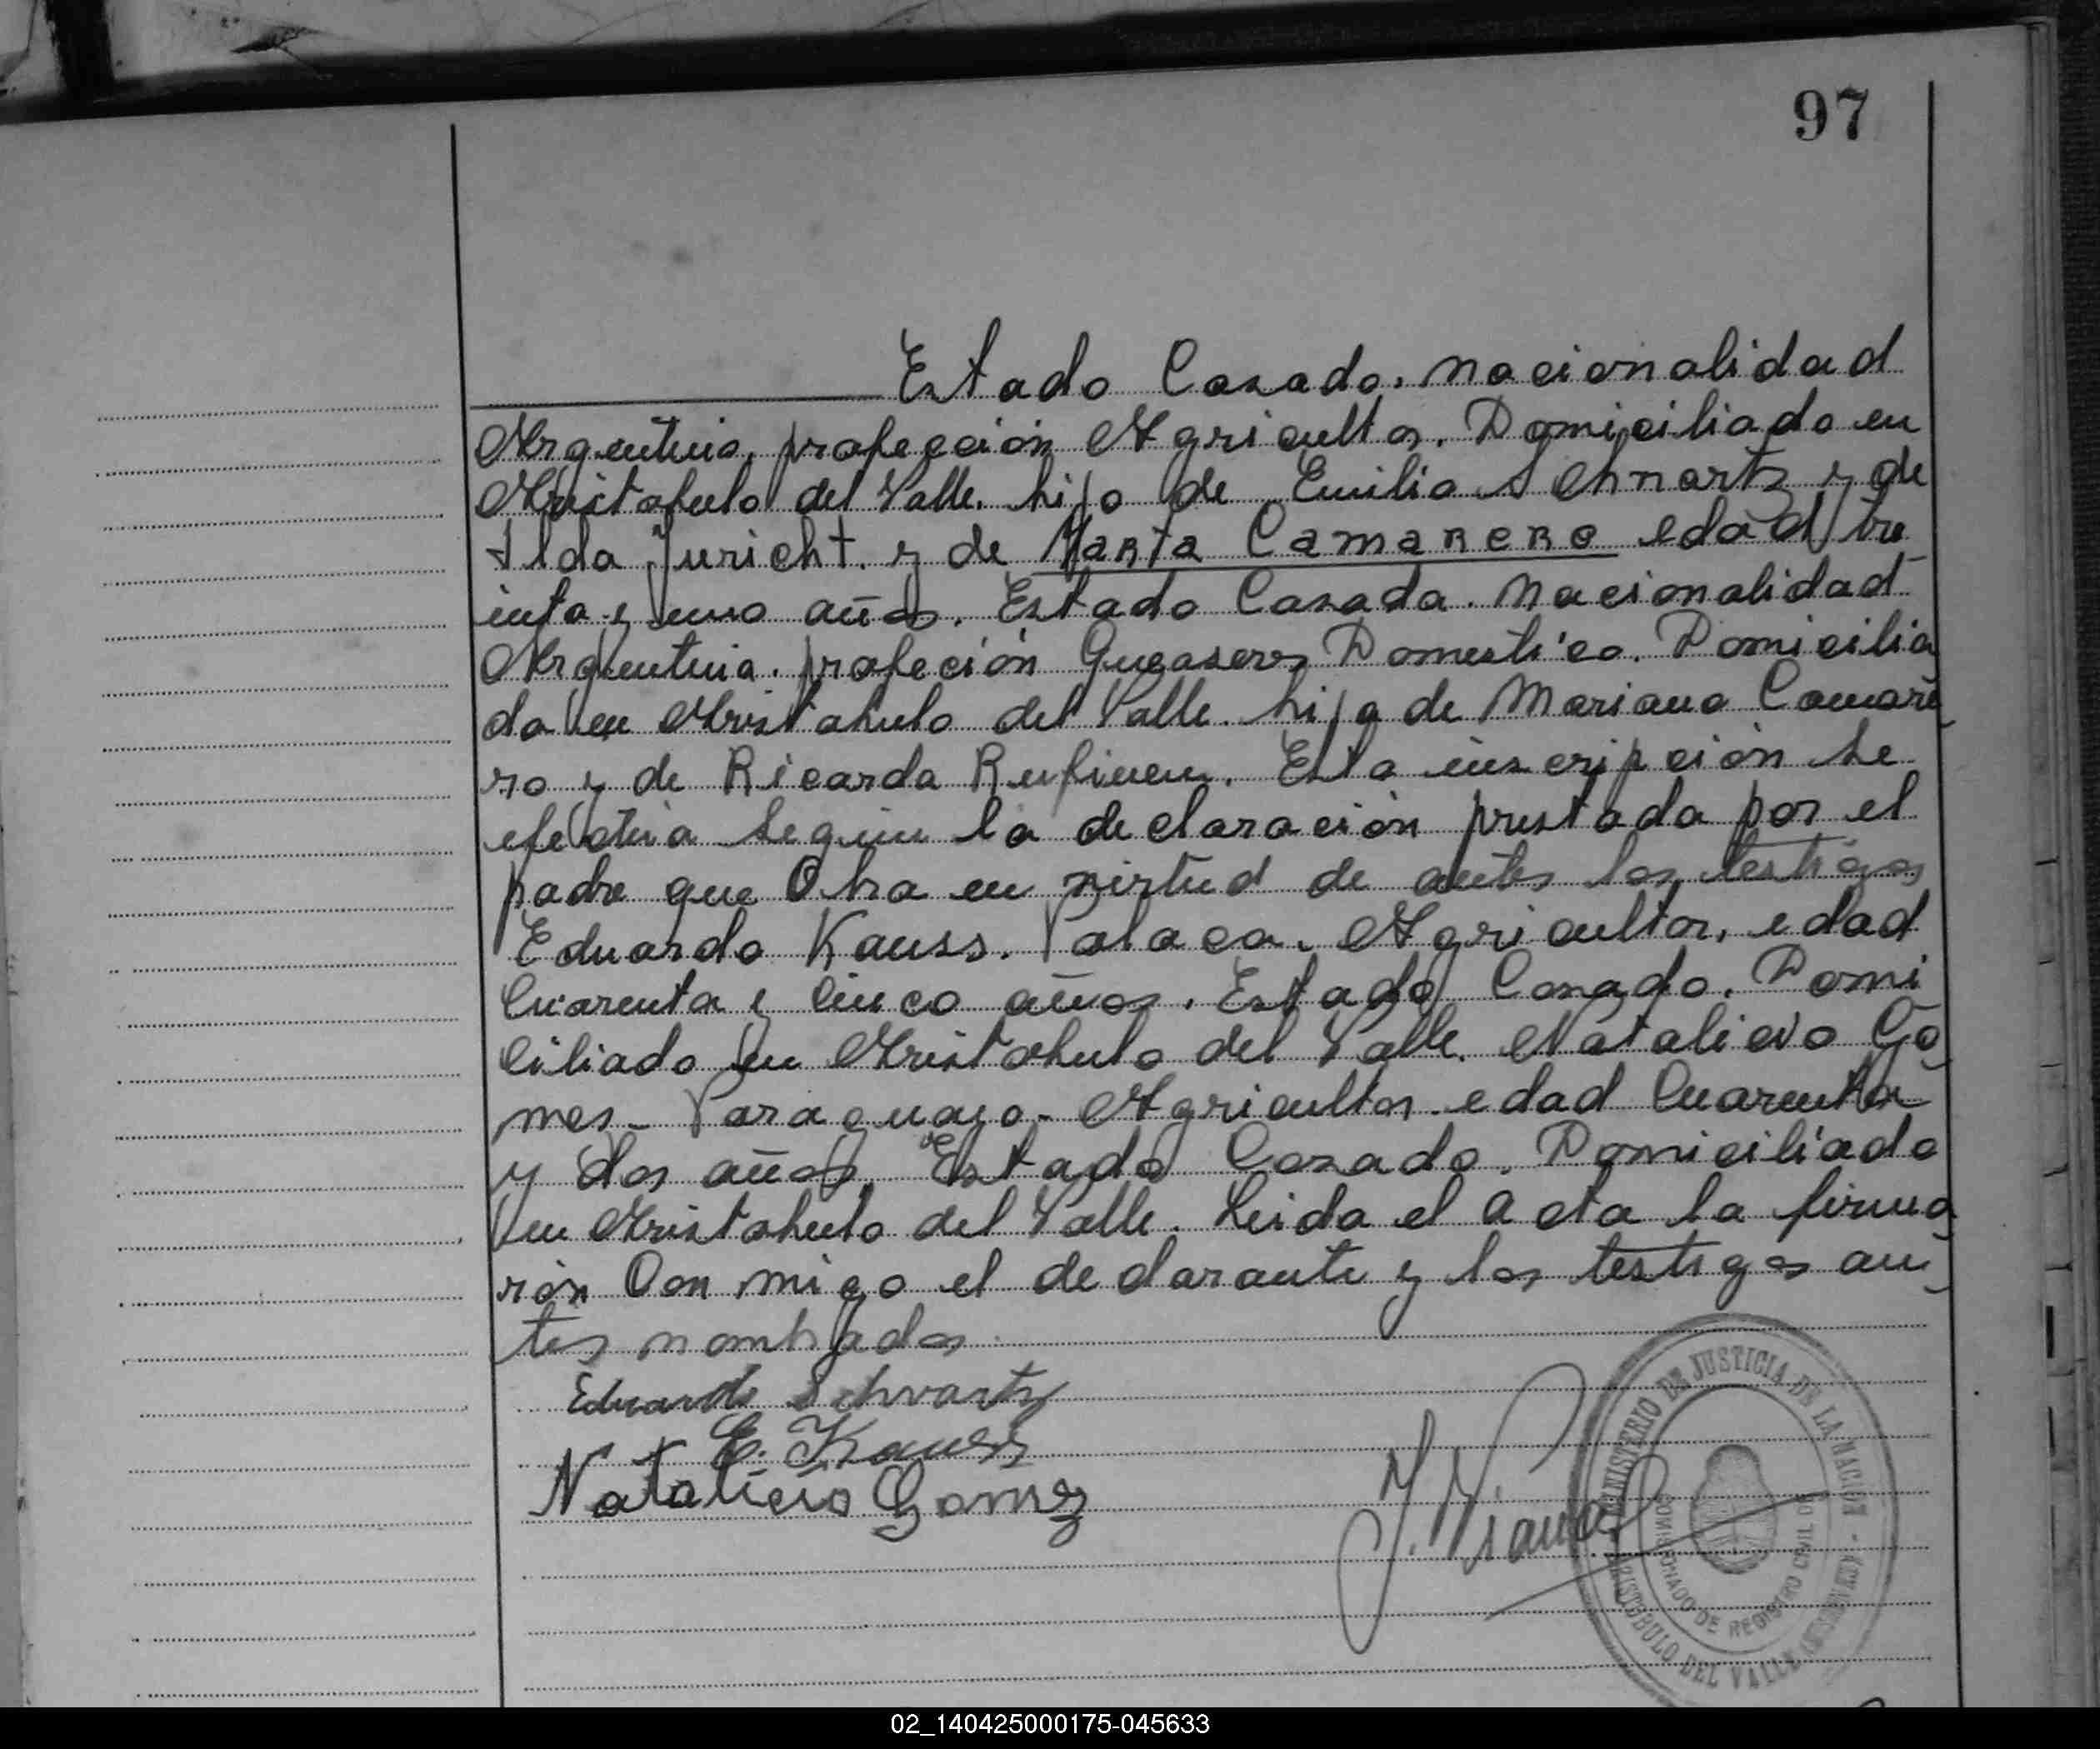 97
Estado Casado. nacionalidad
Argentina, profección Agricultor. Domiciliado en
Aristobulo del Valle. hijo de Emilio Schnartz y de
Ilda Juricht. y de Marta Camarero edad tre
inta y uno años. Estado Casada. nacionalidad
Argentina. profeción Domestico. Domicilia
da en Aristobulo del Valle. hija de Mariano Camare
ro y de Ricarda. Esta inscripción se
efectúa según la declaración prestada por el
padre que Obra en virtud de antes los testigos
Eduardo Kauss. Polaca. Agricultor, edad
Cuarenta y Cinco años. Estado Casado. Domi
ciliado en Aristobulo del Valle. Natalicio Go
mes - Paraguayo - Agricultor - edad Cuarenta
y dos años. Estado Casado. Domiciliado
en Aristobulo del Valle. Leida el Acta la firma
rón Con migo el declarante y los testigos an
tes nombrados
Eduardo Schvartz
E. Kauss
Natalicio Gomez
MINISTERIO DE JUSTICIA DE LA NACIÓN -
COMISIONADO DE REGISTRO CIVIL DE
ARISTOBULO DEL VALLE
02_140425000175-045633